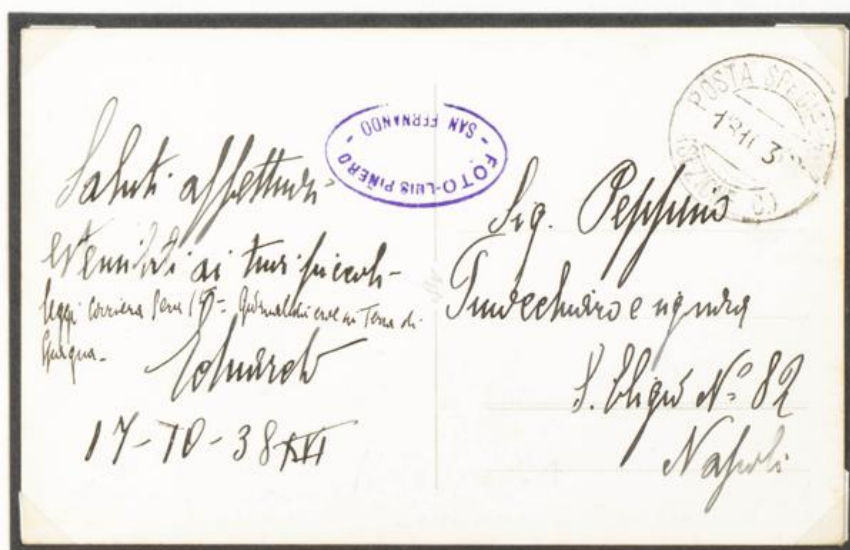 Saluti affettuosi
estensibili ai tuoi piccoli-
leggi Corriera Sera 17- in Terra di
Spagna-
Eduardo
17-10-38 XVI
FOTO-LUIS PIÑERO
- SAN FERNANDO -
POSTA SPECIALE
Sig. Peppino
e signora
S. Eligio Nº 82
Napoli